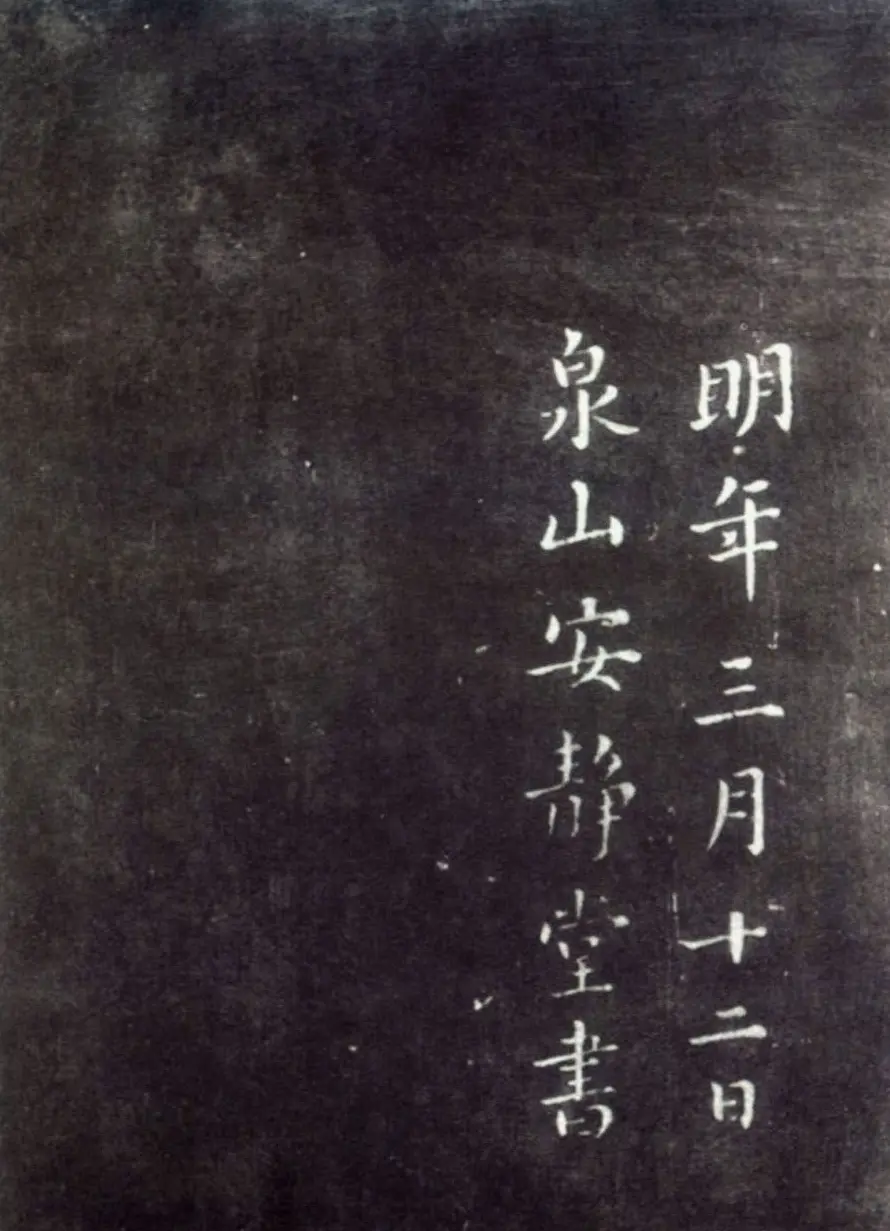 明年三月十二日
泉山安静堂書